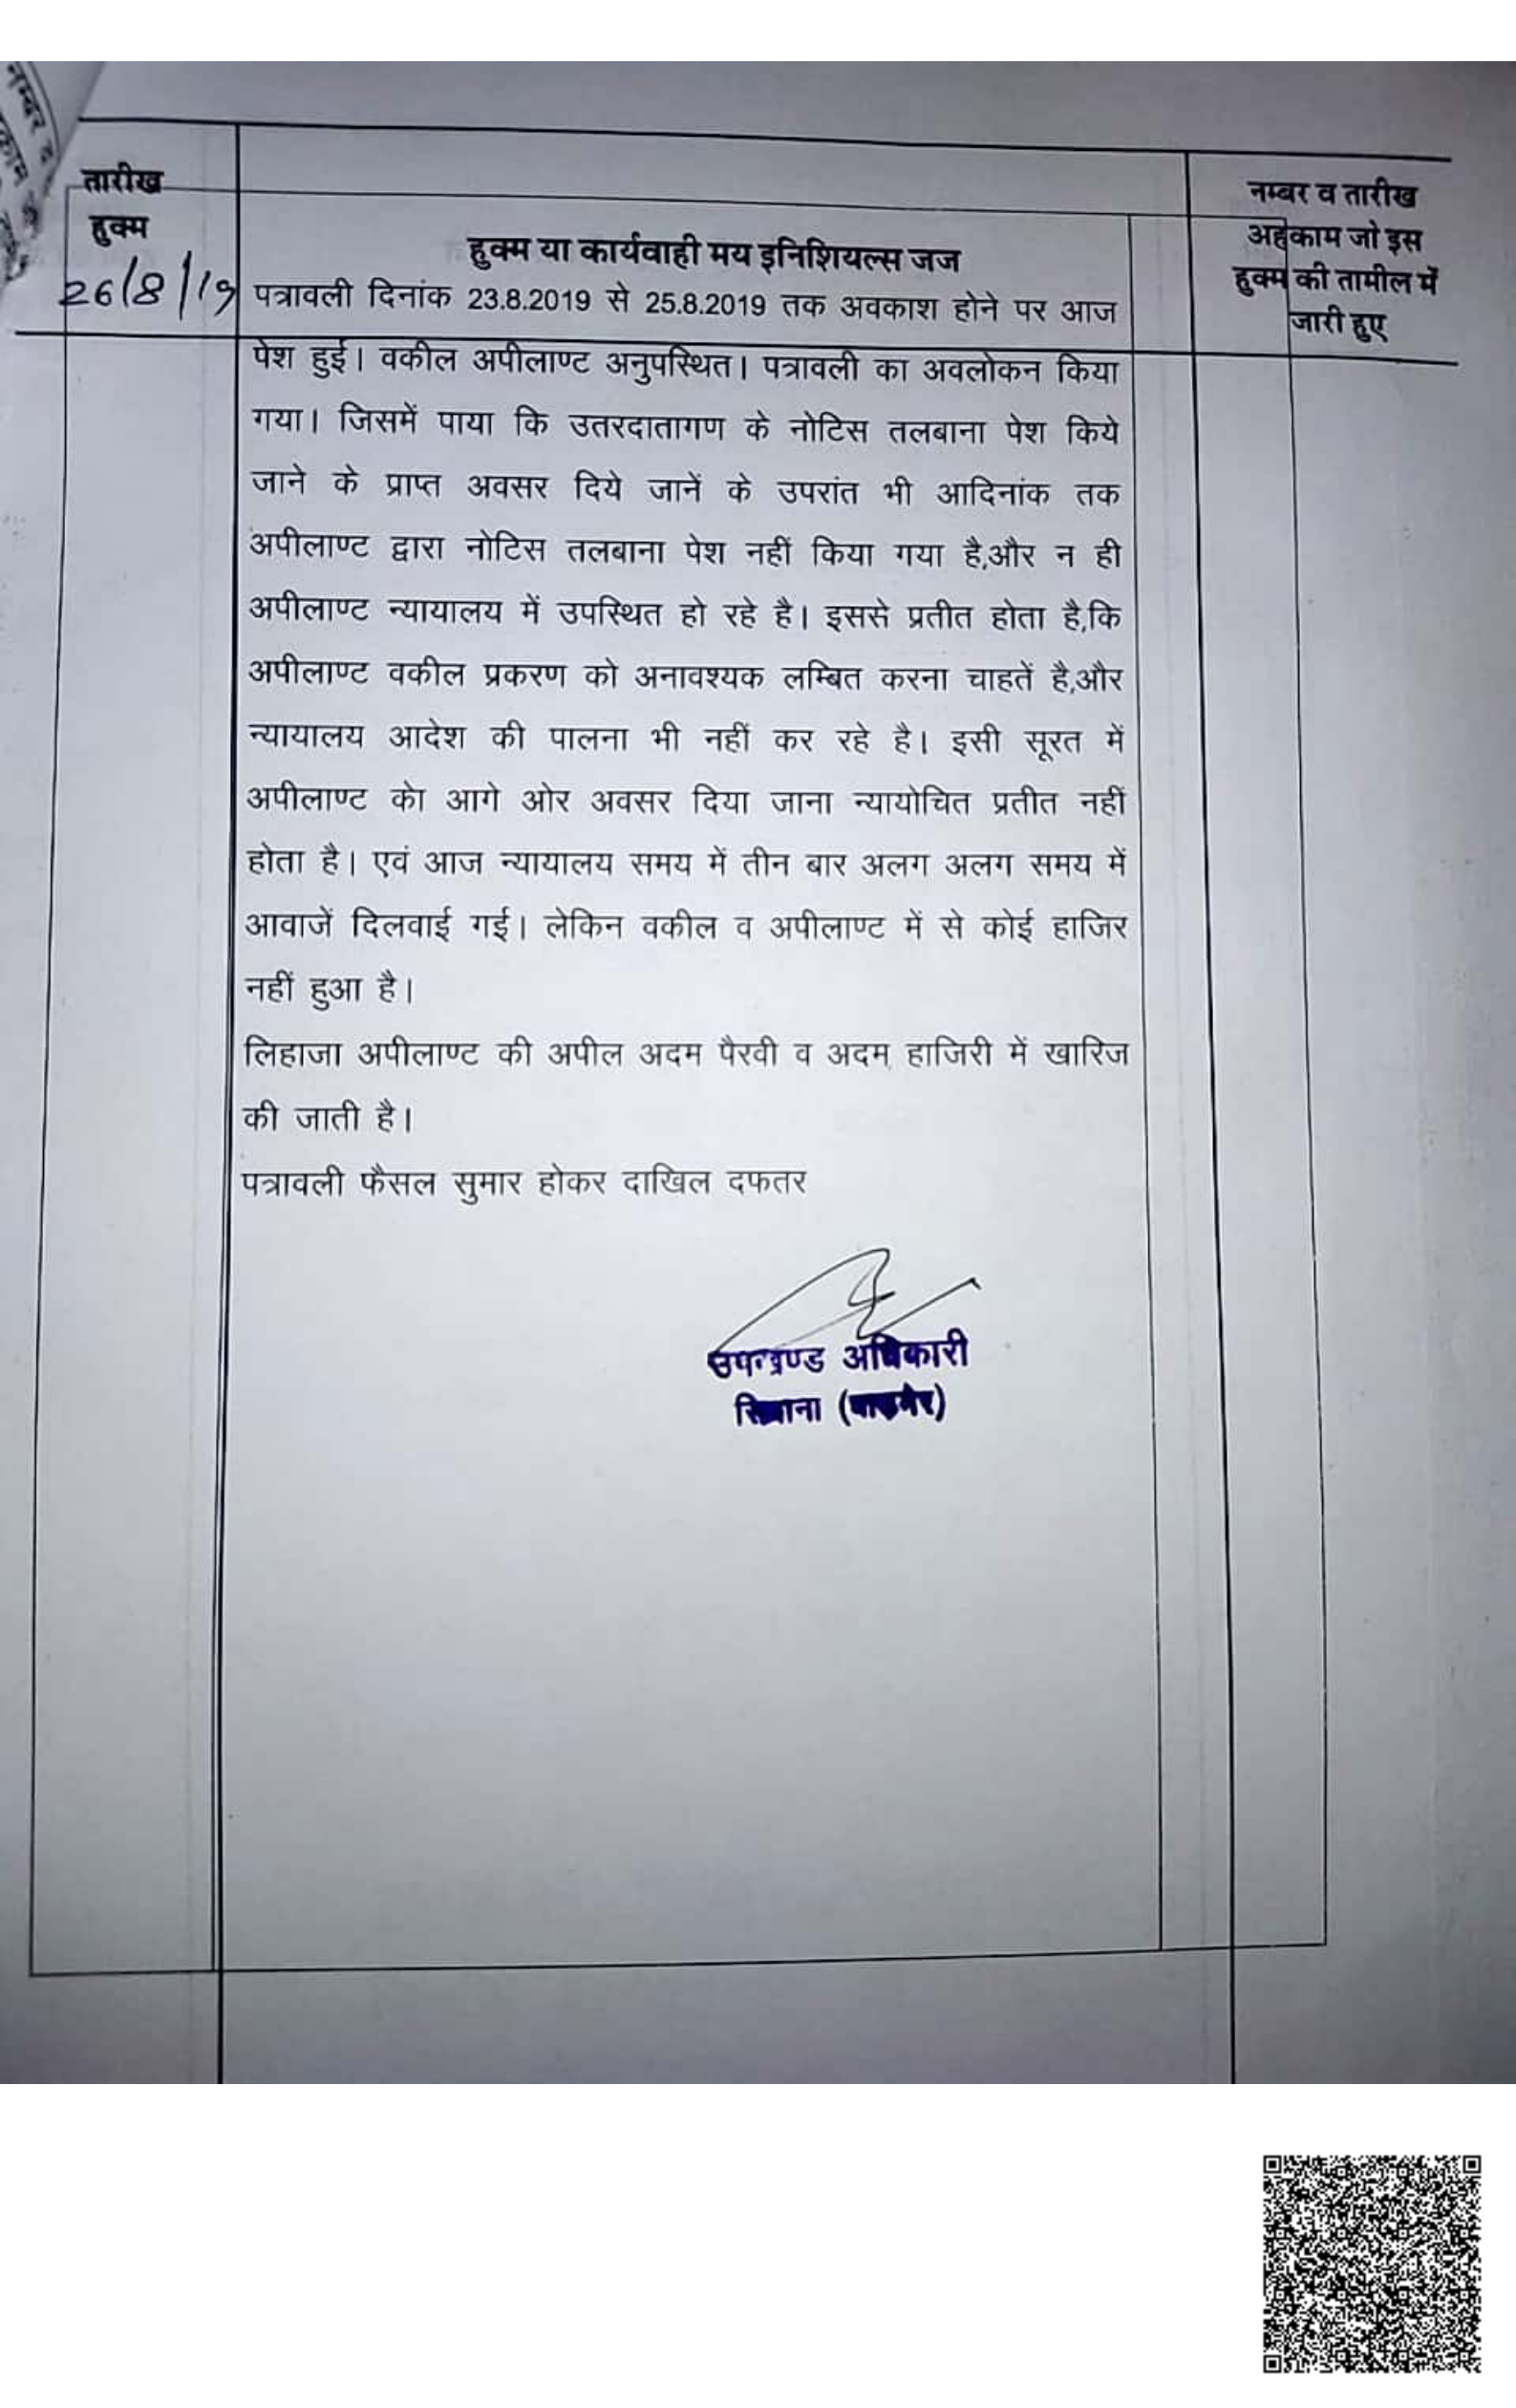 तारीख
हुक्म
हुक्म या कार्यवाही मय इनिशियल्स जज
नम्बर व तारीख
अहकाम जो इस
हुक्म की तामील में
जारी हुए
26/8/19
पत्रावली दिनांक 23.8.2019 से 25.8.2019 तक अवकाश होने पर आज
पेश हुई। वकील अपीलाण्ट अनुपस्थित। पत्रावली का अवलोकन किया
गया। जिसमें पाया कि उतरदातागण के नोटिस तलबाना पेश किये
जाने के प्राप्त अवसर दिये जानें के उपरांत भी आदिनांक तक
अपीलाण्ट द्वारा नोटिस तलबाना पेश नहीं किया गया है,और न ही
अपीलाण्ट न्यायालय में उपस्थित हो रहे है। इससे प्रतीत होता है,कि
अपीलाण्ट वकील प्रकरण को अनावश्यक लम्बित करना चाहतें है,और
न्यायालय आदेश की पालना भी नहीं कर रहे है। इसी सूरत में
अपीलाण्ट केा आगे ओर अवसर दिया जाना न्यायोचित प्रतीत नहीं
होता है। एवं आज न्यायालय समय में तीन बार अलग अलग समय में
आवाजें दिलवाई गई। लेकिन वकील व अपीलाण्ट में से कोई हाजिर
नहीं हुआ है।
लिहाजा अपीलाण्ट की अपील अदम पैरवी व अदम हाजिरी में खारिज
की जाती है।
पत्रावली फैसल सुमार होकर दाखिल दफतर
उपखण्ड अधिकारी
सिवाना (बाड़मेर)